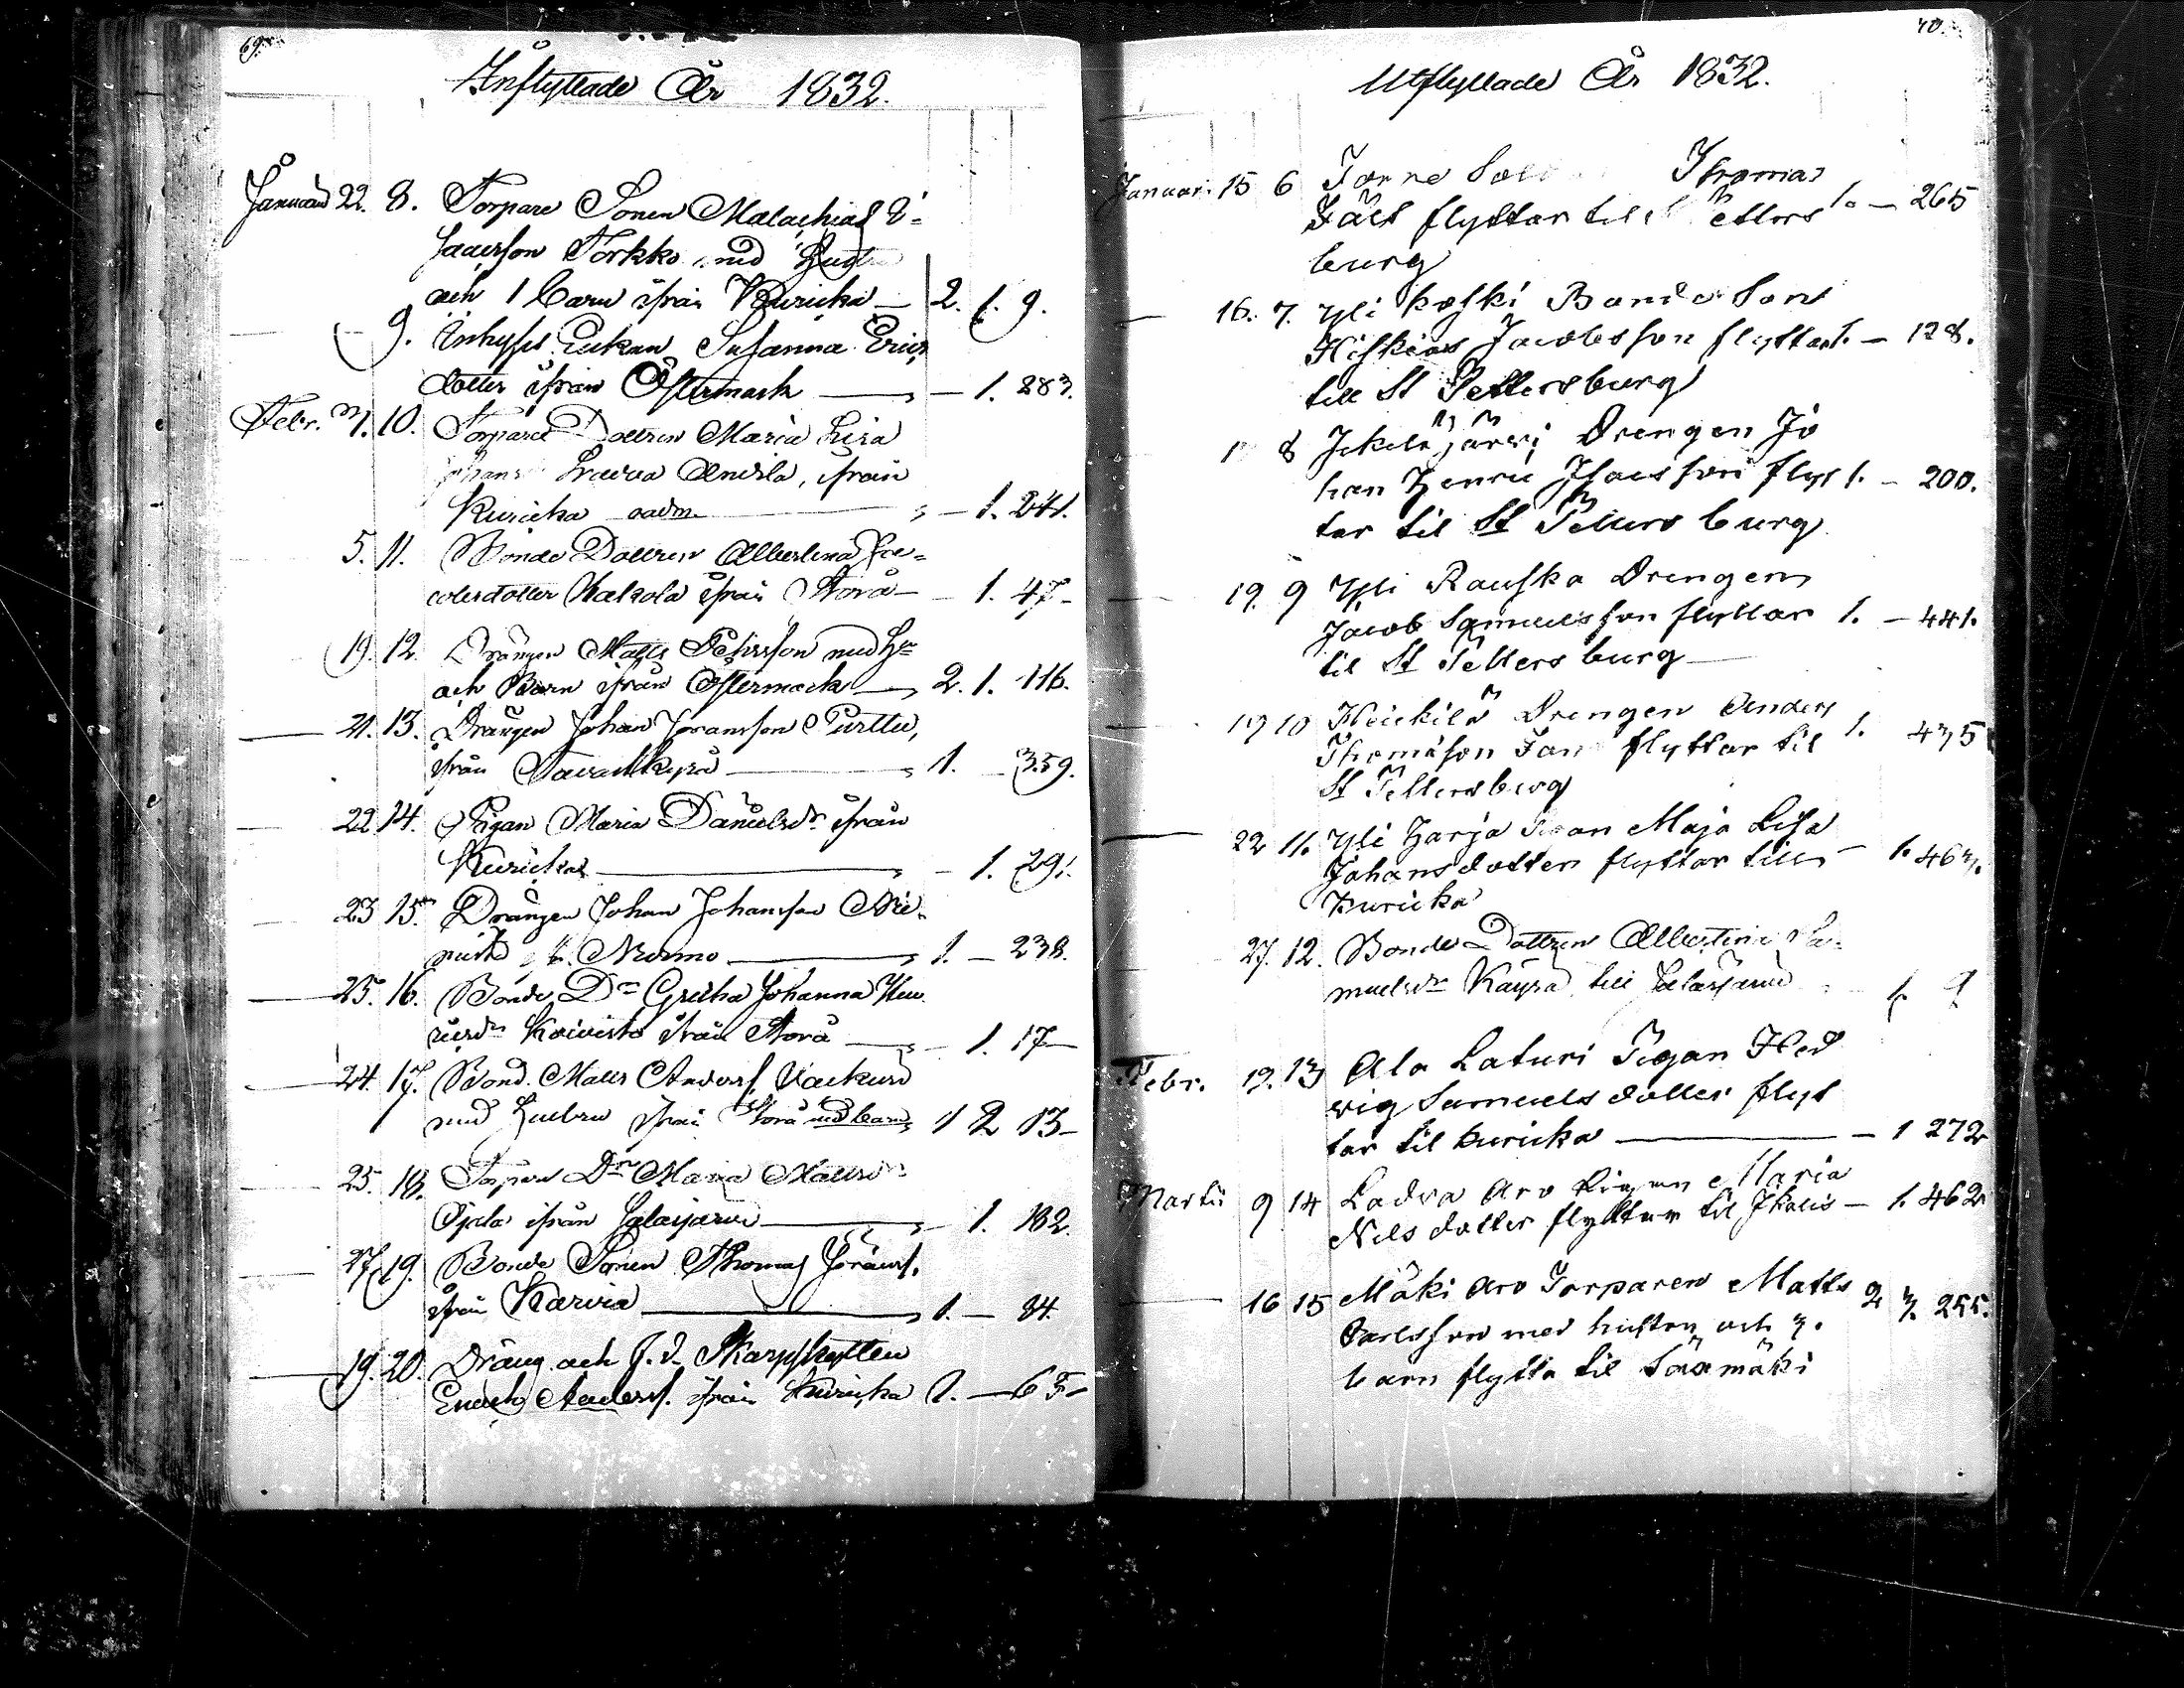 69.
Inflyttade År 1832.
Januari 22. 8. Torpare Sonen Malachias I-
sacsson Torkko med Hustru
och 1 Barn ifrån Kuricka — 2. 1. 9.
— 9. Inhyses Enkan Susanna Erics
dotter ifrån Östermark — 1. 283.
Febr. 3. 10. Torpare Dottren Maria Lisa
från
Kuricka — 1. 241.
5. 11. Bonde Dottren Albertina Jac-
obsdotter Kakola ifrån Storå — 1. 47 —
19. 12. Drängen Matts Pehrsson med H
och Barn ifrån Östermark — 2. 1. 116.
— 21. 13. Drängen Johan Göransson Purttu,
från Tavastkyrö — 1. — 359.
— 22 14. Pigan Maria Danielsdr ifrån
Kuricka — 1. 291.
— 23 15. Drängen Johan Johansson
Nurmo — 1. — 238.
— 25. 16. Bonde Dr Gretha Johanna Hen-
ricsdr Koivisto ifrån Storå — 1. 17 —
— 24. 17. Bond. Matts Anderss.
med Hustru ifrån Storå med barn 1 2 13 —
25. 18. Torpare Dr Maria Mattsdr
Ojala ifrån Jalasjärvi — 1. 182.
— 27. 19. Bonde Sonen Thomas Göranss.
från Karvia — 1. — 84.
— 19. 20. Dräng och f.d. Skarpskytten
Enoch Anderss. från Kuricka 1. — 65 —
70.
Utflyttade År 1832.
Januari 15 6 Thomas
Fält flyttar till Petters 1. — 265
burg
— 16. 7. Yli Koski Bonde Son
Hiskias Jacobsson flyttar 1. — 128.
till St Pettersburg
8 Jokela järvi Drengen Jo
han Henric Isacsson flyt 1. — 200.
tar til St Pettersburg
— 19. 9 Yli Rauska Drengen
Jacob Samuelsson flyttar 1. — 441.
til St Pettersburg
— 19 10 Heickilä Drengen Anders
Thomasson flyttar til 1. 435
St Pettersburg
— 22 11. Yli Harja Pigan Maja Lisa
Johansdotter flyttar till — 1. 463.
Kuricka
27. 12. Bonde Dottren Albertina Sa-
muelsdr Käyrä till Jalasjärvi 1. 9
Febr. 19. 13 Ala Laturi Pigan Hed
vig Samuels dotter flyt
tar til Kuricka — 1 272
Martii 9 14 Ladva Aro Pigan Maria
Nils dotter flyttar til Ikalis — 1. 462
— 16 15 Mäki Aro Torparen Matts 2 3. 255.
Carlsson med hustru och 3.
barn flytta til Säxmäki